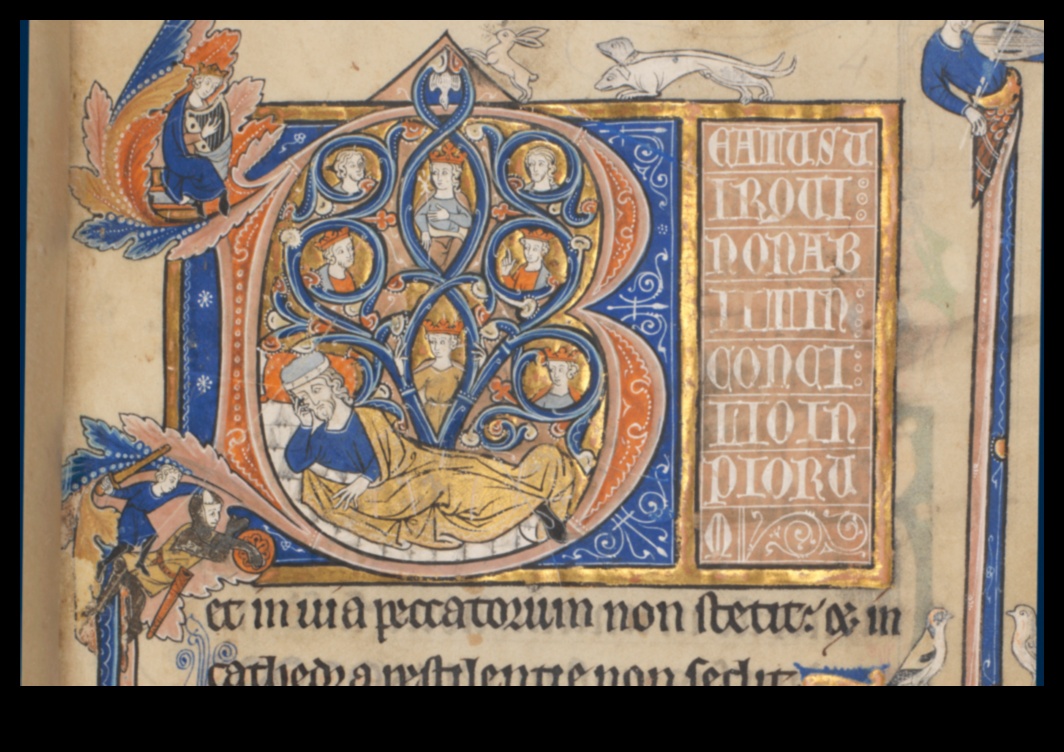 B
EATUS U
IR QUI
NON AB
I IT IN
CONCI
LIO IN
PIORU
M
et in uia peccatorum non stetit: & in
cathedra pestilentie non sedit